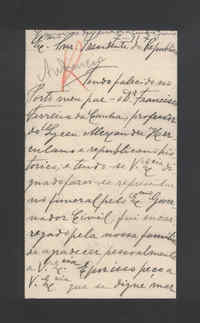 Ex. Snr. Presidente da Republica
Tendo falecido no
Porto meu pae - o Dr. Francisco
Ferreira da Cunha, professor
do Lyceu Alexandre Her-
culano e republicano his-
torico, e tendo-se V. Excia di-
gnado fazer-se representar
no funeral pelo Exmo Gover-
nador Civil, fui encar-
regado pela nossa familia
de agradecer pessoalmente
a V. Excia. E por isso peço a
V. Excia que se digne mar-